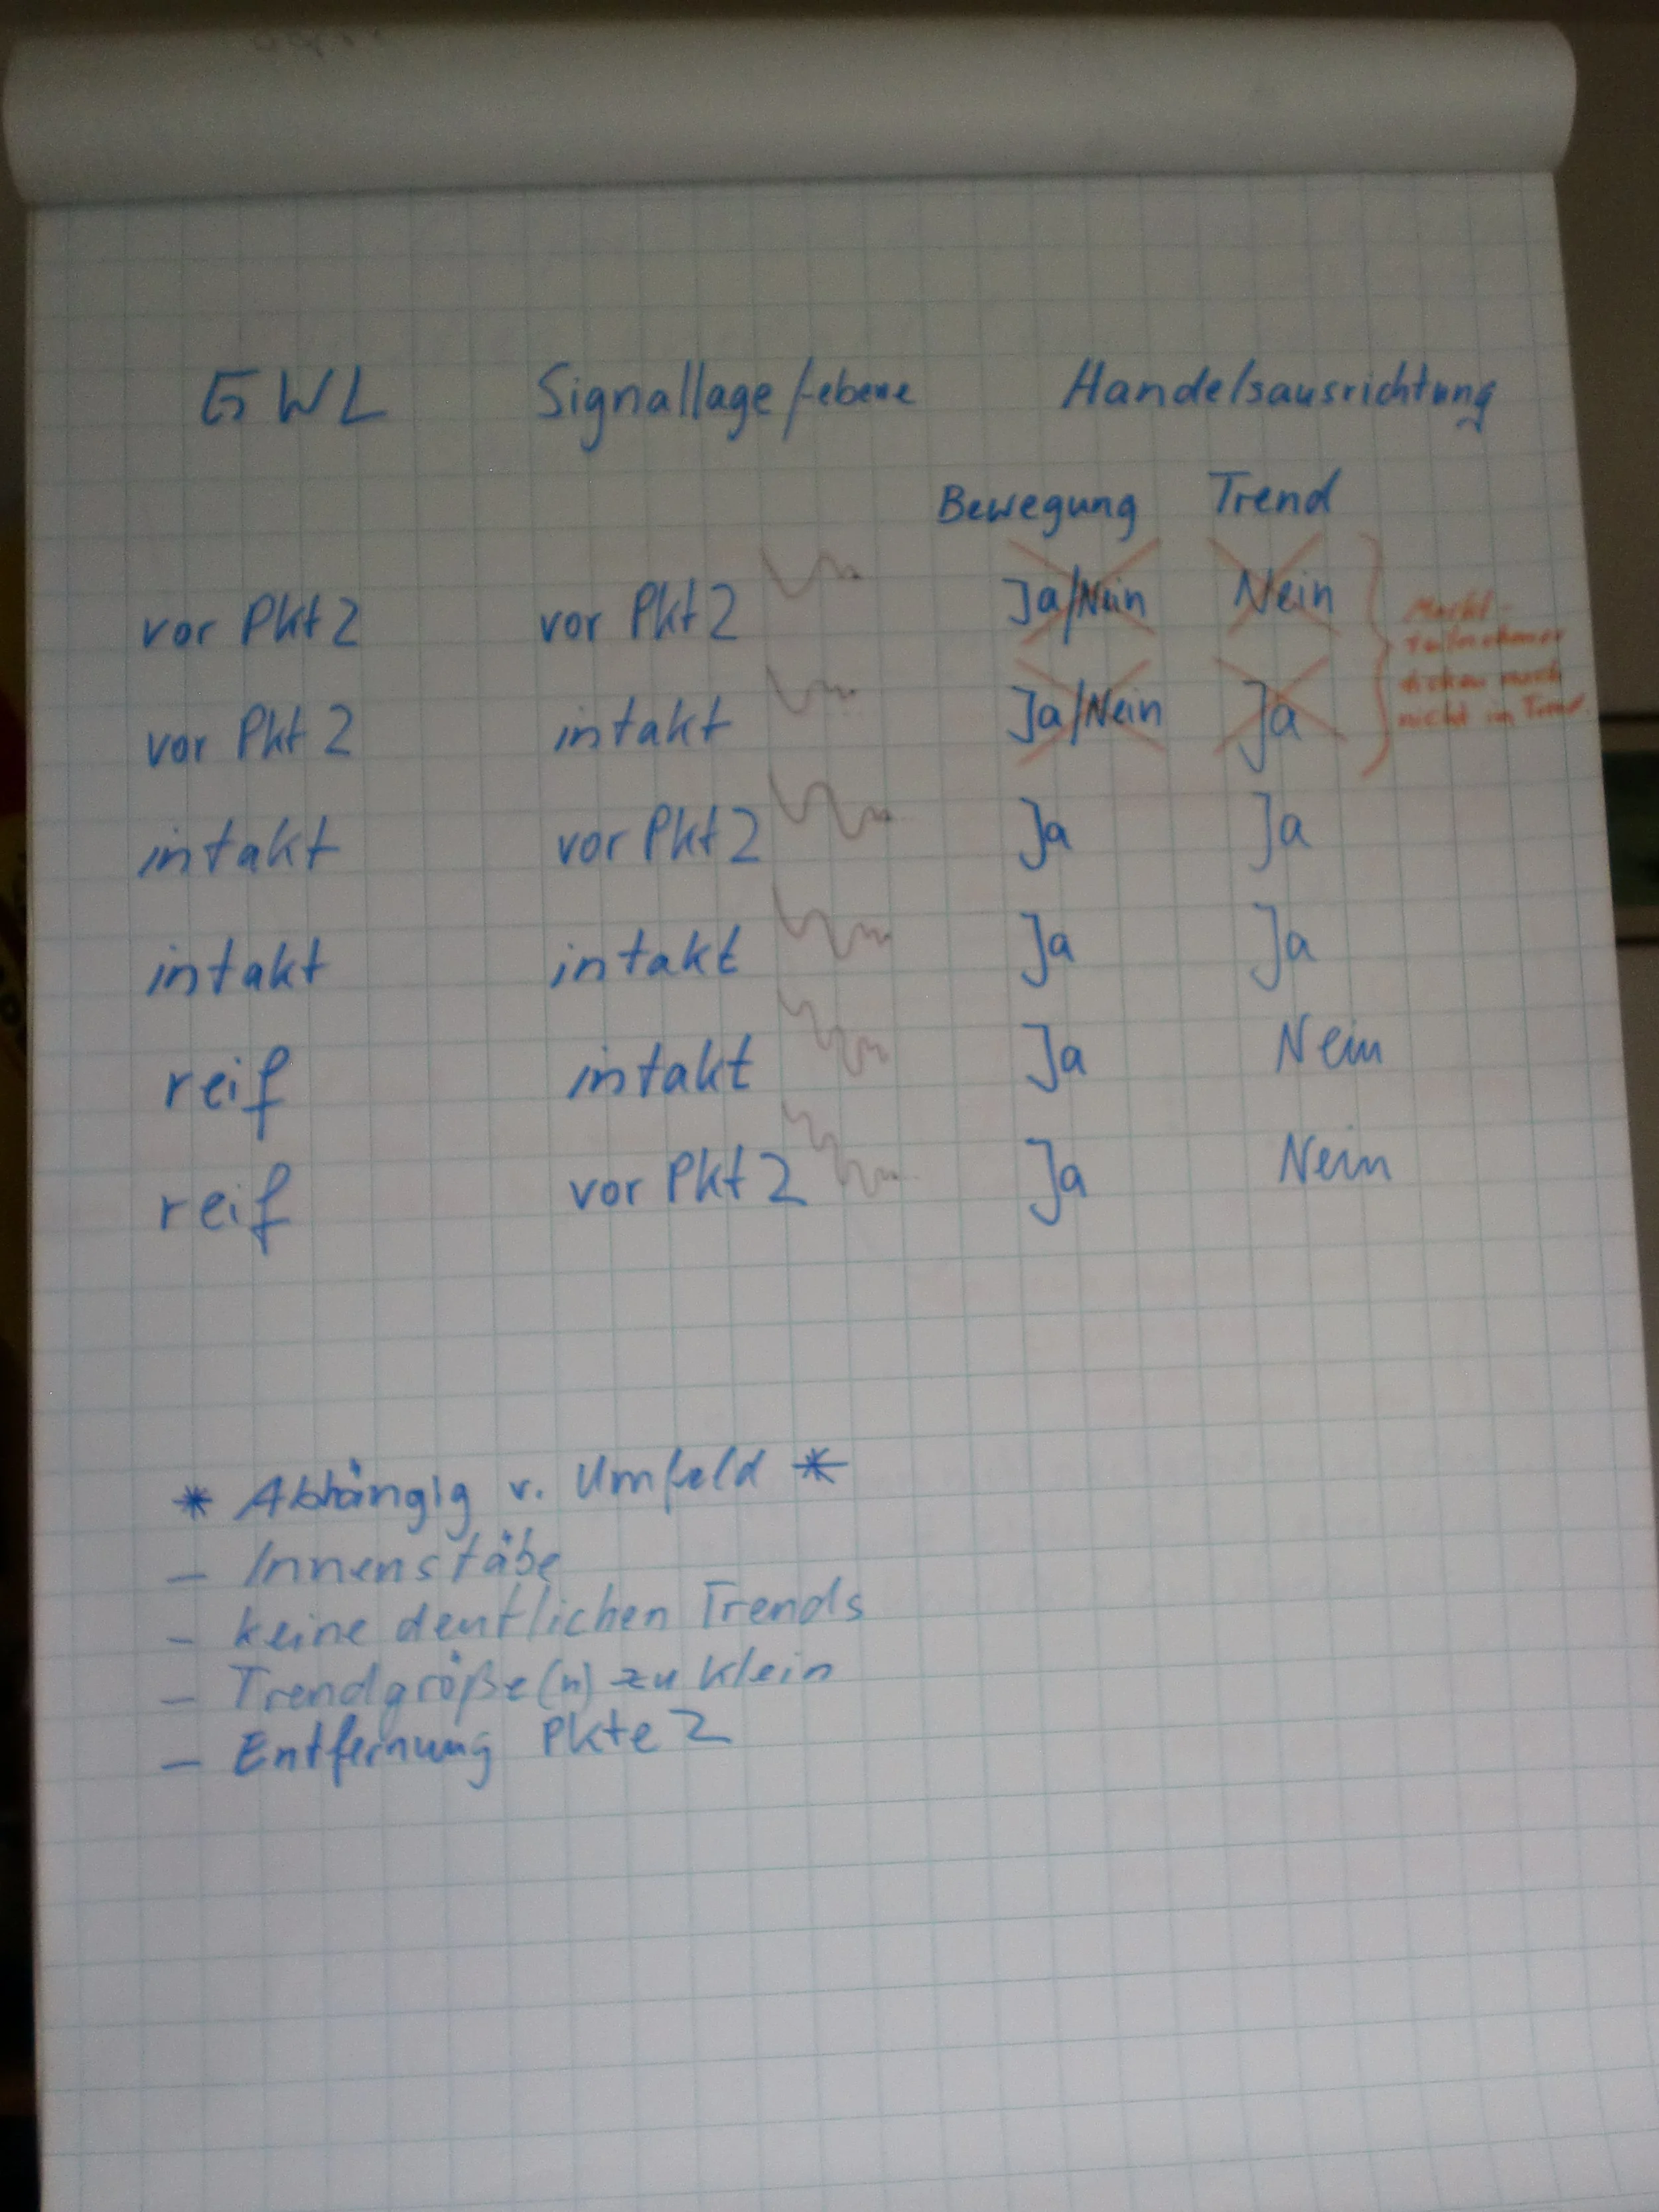 GWL Signallage/-ebene Handelsausrichtung
Bewegung Trend
vor Pkt 2 vor Pkt 2 Ja/Nein Nein
vor Pkt 2 intakt Ja/Nein Ja
Markt-
teilnehmer
noch
nicht im Trend
intakt vor Pkt 2 Ja Ja
intakt intakt Ja Ja
reif intakt Ja Nein
reif vor Pkt 2 Ja Nein
* Abhängig v. Umfeld *
- Innenstäbe
- keine deutlichen Trends
- Trendgröße(n) zu klein
- Entfernung Pkte 2